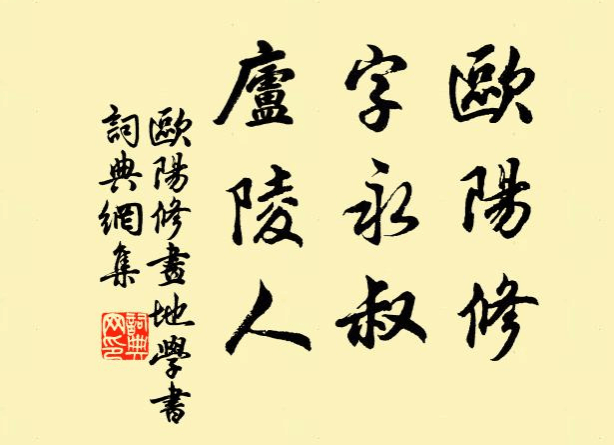 歐陽修
字永叔
廬陵人
歐陽修畫地學書
詞典網集
詞典
网印